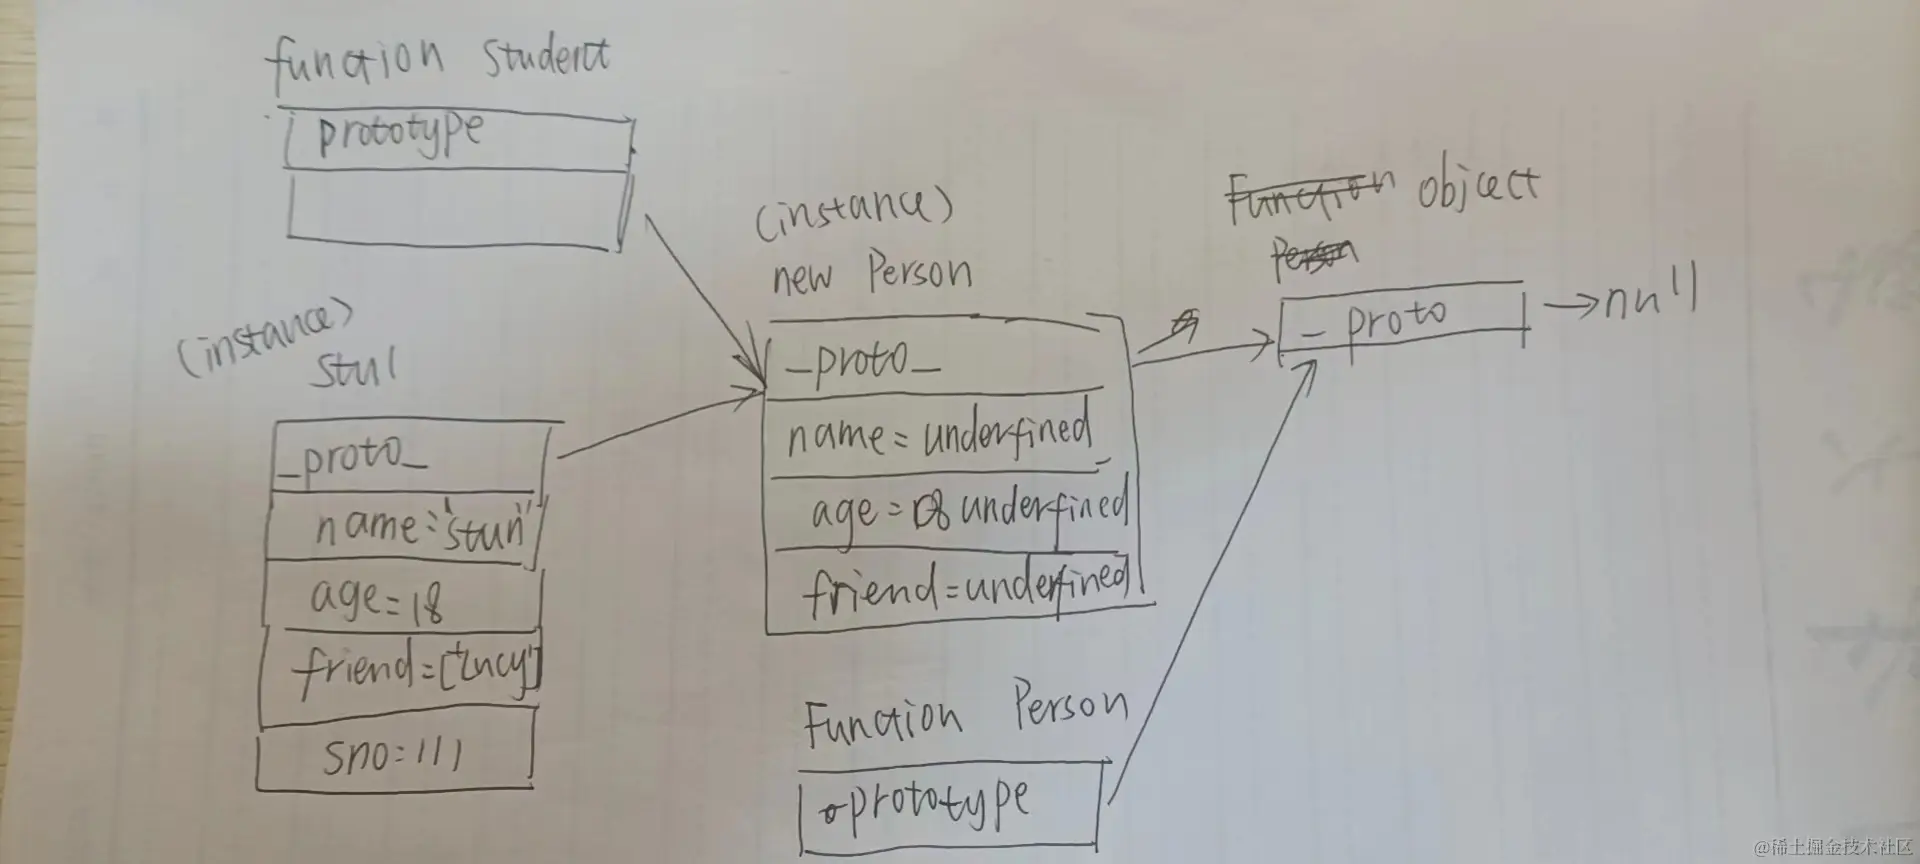 function student
prototype
(instance)
stu1
_proto_
name="stun"
age=18
friend=["Lucy"]
sno:111
(instance)
new Person
_proto_
name=underfined
age= underfined
friend=underfined
Function Person
prototype
Function object
Person
_ proto
null
@稀土掘金技术社区